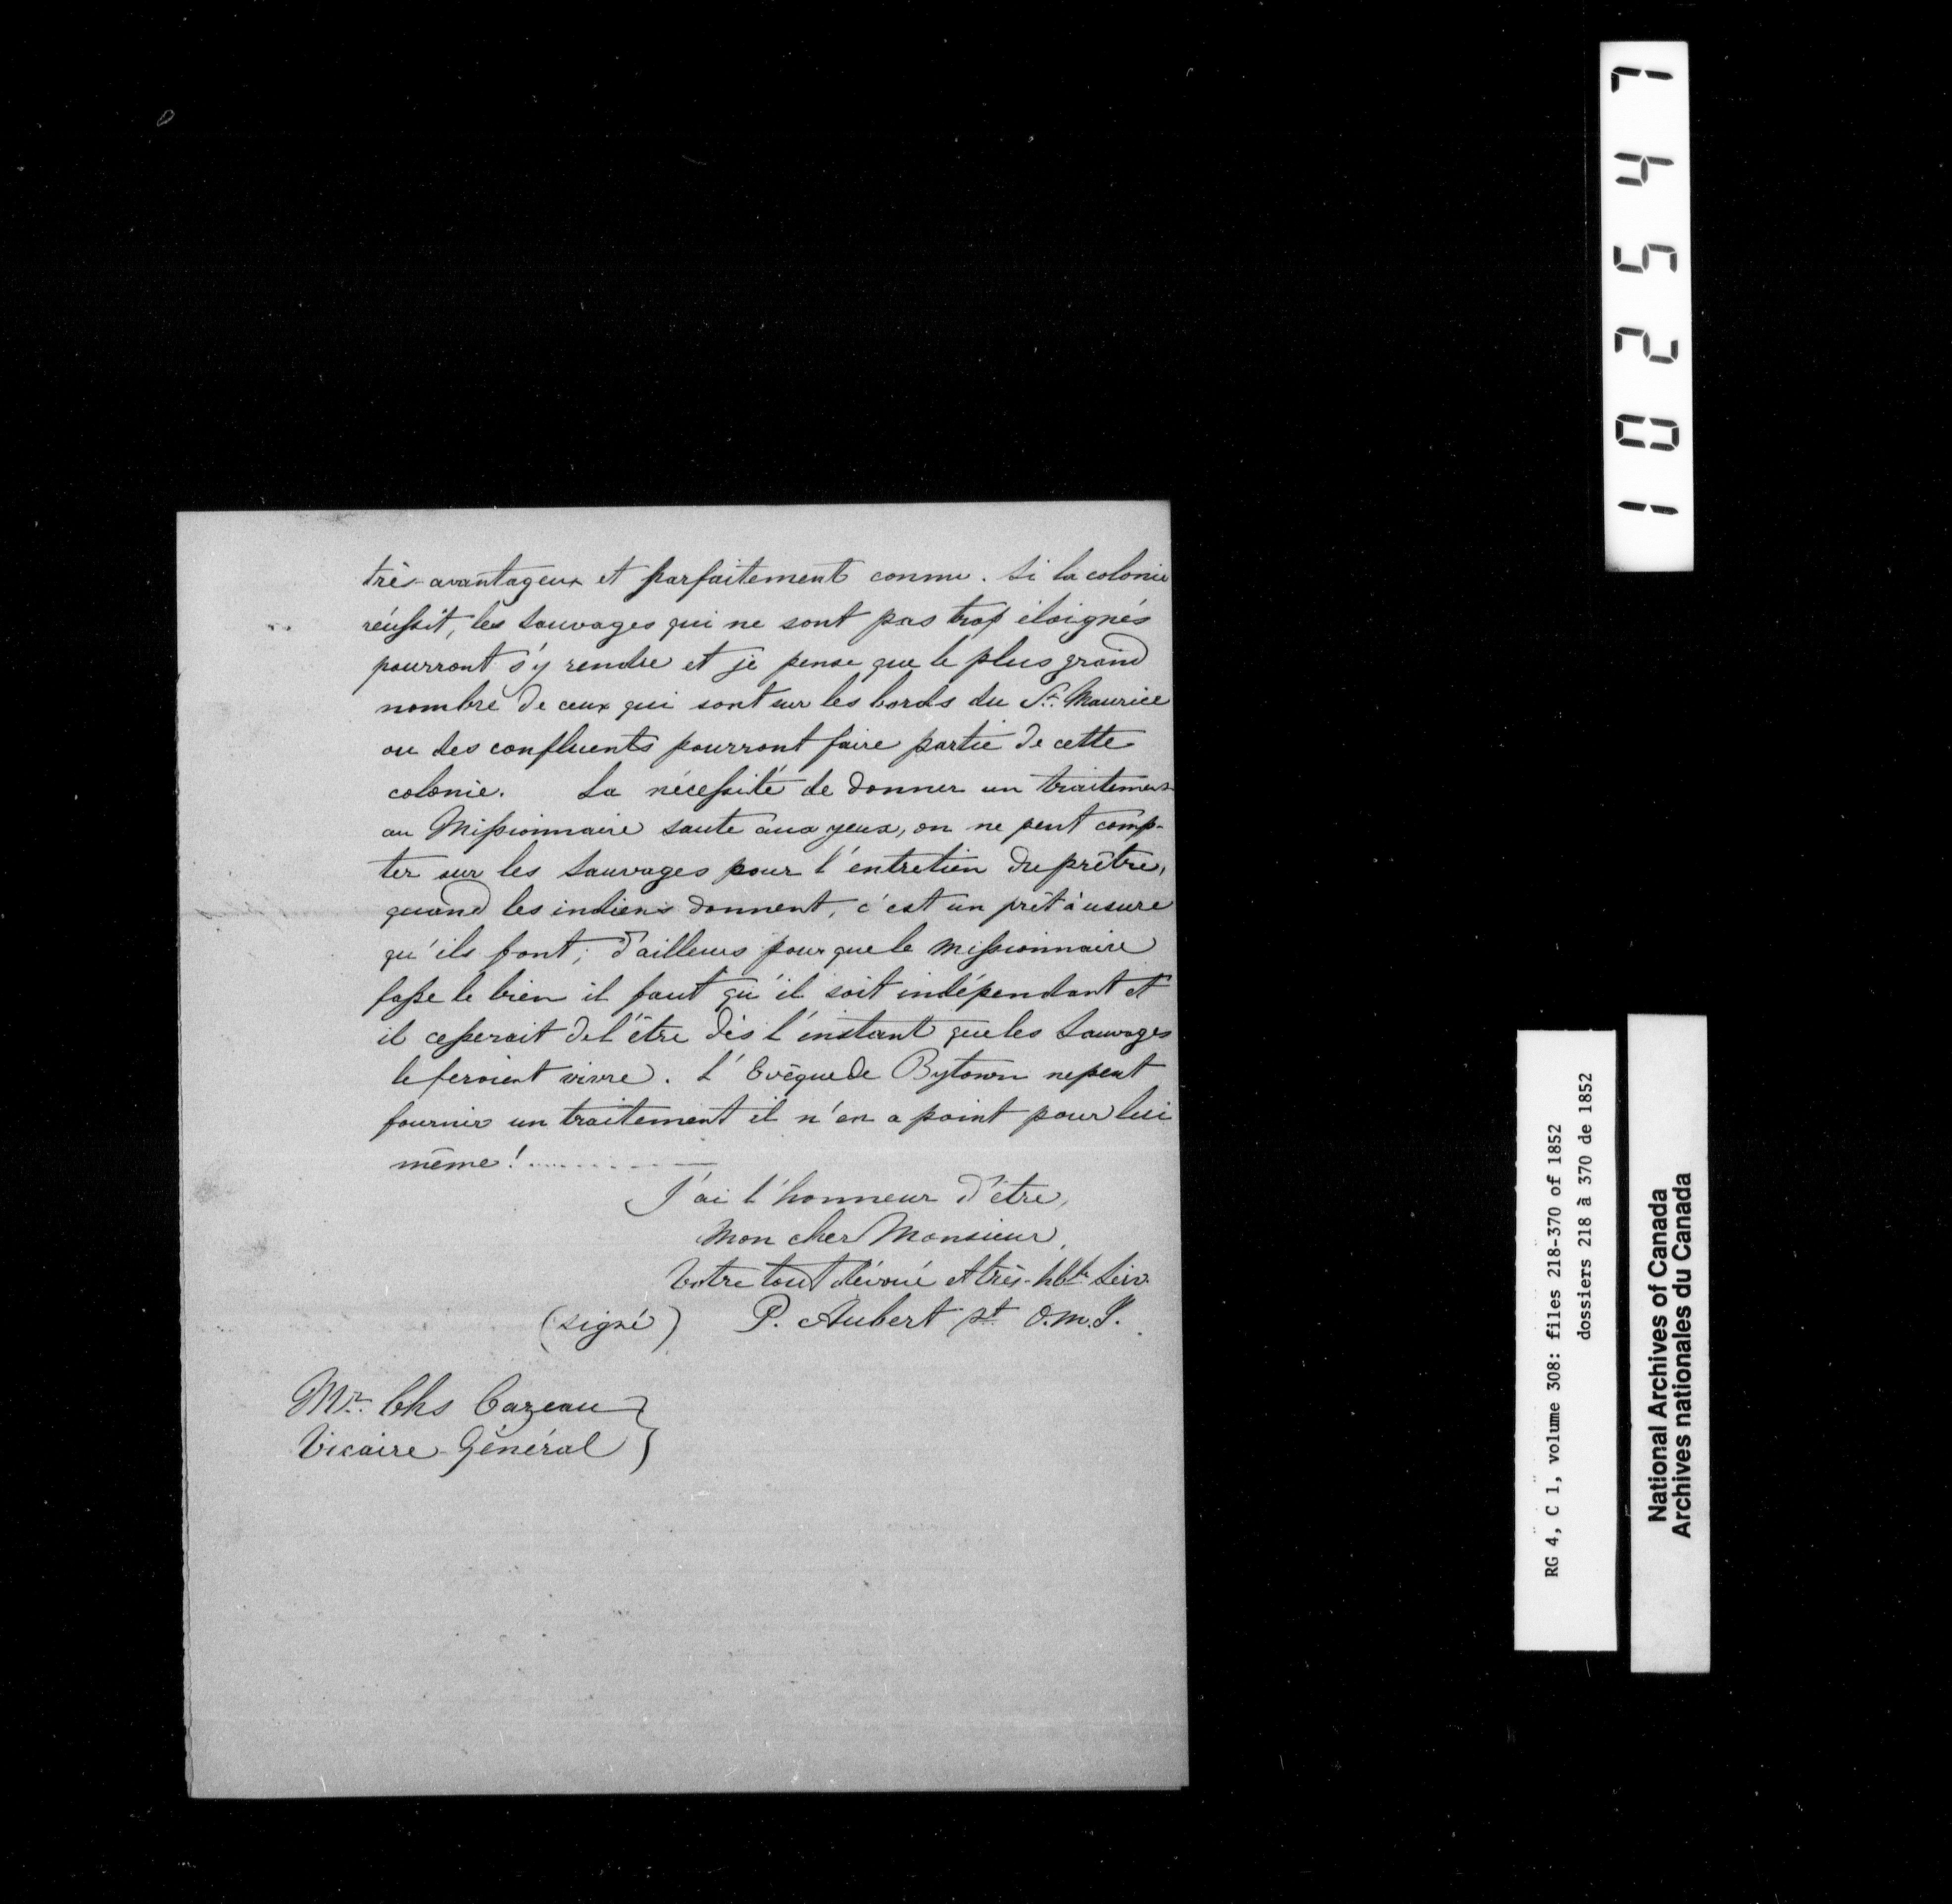 très-avantageux et parfaitement connu. Si la colonie
réussit, les Sauvages qui ne sont pas trop éloignés
pourront s'y rendre et je pense que le plus grand
nombre de ceux qui sont sur les bords du St. Maurice
ou des confluents pourront faire partie de cette
colonie. La nécessité de donner un traitement
au Missionnaire saute aux yeux, on ne peut comp-
ter sur les Sauvages pour l'entretien du prêtre,
quand les indiens donnent, c'est un prêt à usure
qu'ils font; d'ailleurs pour que le Missionnaire
fasse le bien il faut qu'il soit indépendant et
il cesserait de l'être dès l'instant que les Sauvages
le feroient vivre. L'Evêque de Bytown ne peut
fournir un traitement il n'en a point pour lui
même!..........
J'ai l'honneur d'être,
Mon cher Monsieur,
Votre tout dévoué et très-hble Serv.
(signé) P. Aubert pt O.M.I.
Mr. Chs Cazeau
Vicaire-Général
102547
RG 4, C 1, volume 308: files 218-370 of 1852
dossiers 218 à 370 de 1852
National Archives of Canada
Archives nationales du Canada